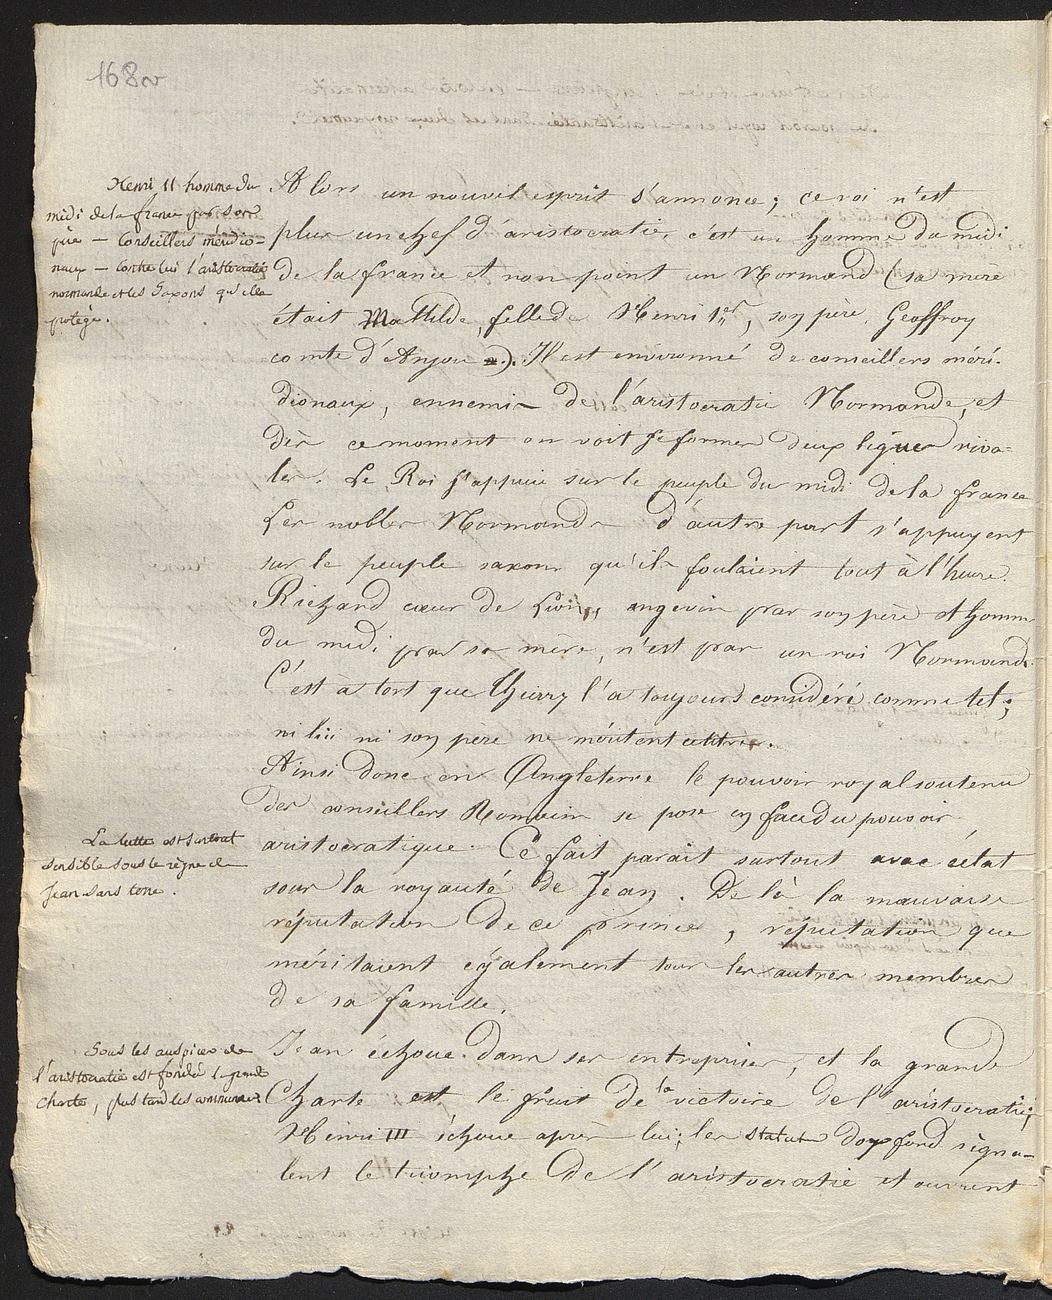 168v
Henri II homme du
midi de la france par son
père — Conseillers méridio-
naux — Contre lui l'aristocratie
normande et les Saxons qu'elle
protège.
Alors un nouvel esprit s'annonce ; ce roi n'est
plus un chef d'aristocratie, c'est un homme du midi
de la france et non point un Normand (sa mère
était Mathilde, fille de Henri 1er, son père, Geoffroy
comte d'Anjou). Il est environné de conseillers méri-
dionaux, ennemis de l'aristocratie Normande, et
dès ce moment on voit se former deux ligues riva-
les. Le Roi s'appuie sur le peuple du midi de la france
Les nobles Normands d'autre part s'appuyent
sur le peuple saxon qu'ils foulaient tout à l'heure.
Richard cœur de Lion, angevin par son père et homme
du midi par sa mère, n'est pas un roi Normand.
C'est à tort que Thierry l'a toujours considéré comme tel ;
ni lui ni son père ne méritent ce titre.
Ainsi donc en Angleterre le pouvoir royal soutenu
des conseillers Romains se pose en face du pouvoir
aristocratique. Ce fait parait surtout avec éclat
sous la royauté de Jean. De là la mauvaise
réputation de ce prince, réputation que
méritaient également tous les autres membres
de sa famille.
La lutte est surtout
sensible sous le règne de
Jean sans terre.
Jean échoue dans ses entreprises, et la grande
Charte est le fruit de la victoire de l'aristocratie ;
Henri III échoue après lui ; les statuts d'oxford signa-
lent le triomphe de l'aristocratie et ouvrent
Sous les auspices de
l'aristocratie est fondée la grande
charte, plus tard les communes